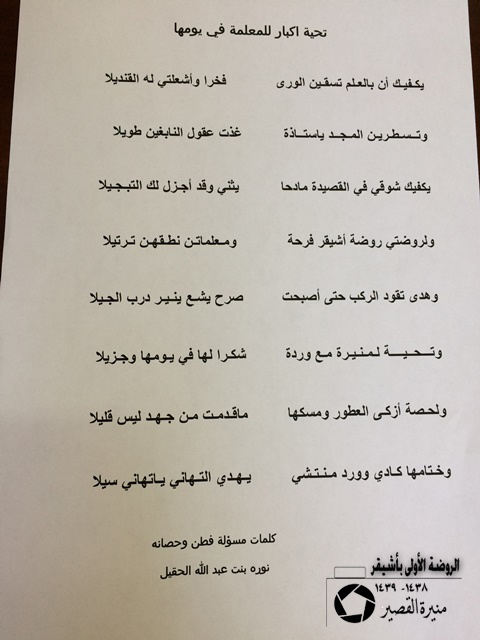 تحية اكبار للمعلمة في يومها
يكفيك أن بالعلم تسقين الورى فخرا وأشعلتي له القنديلا
وتسطرين المجد ياستاذة غذت عقول النابغين طويلا
يكفيك شوقي في القصيدة مادحا يثني وقد أجزل لك التبجيلا
ولروضتي روضة أشيقر فرحة ومعلماتن نطقهن ترتيلا
وهدى تقود الركب حتى أصبحت صرح يشع ينير درب الجيلا
وتحية لمنيرة مع وردة شكرا لها في يومها وجزيلا
ولحصة أزكى العطور ومسكها ماقدمت من جهد ليس قليلا
وختامها كادي وورد منتشي يهدي التهاني ياتهاني سيلا
كلمات مسؤلة فطن وحصانه
نوره بنت عبد الله الحقيل
الروضة الأولى بأشيقر
١٤٣٨- ١٤٣٩
منيرة القصير